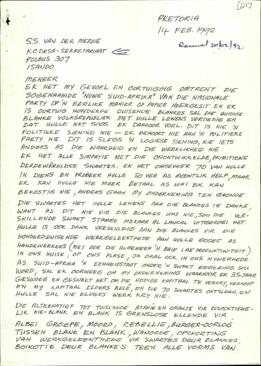 PRETORIA
14 FEB. 1992
S.S. VAN DER MERWE
KODESA-SEKRETARIAAT
POSBUS 307
ISANDO
MENEER
EK HET MY GEVOEL EN OORTUIGING OMTRENT DIE
SOGENAAMDE NUWE SUID-AFRIKA VAN DIE NASIONALE
PARTY OP 'N EERLIKE MANIER OP PAPIER NEERGESIT EN EK
IS OORTUIG HONDERDE DUISENDE BLANKES SAL DIE
BLANKE VOLKSREPUBLIEK MET HULLE LEWENS VERDEDIG EN
DAT HULLE NET SOOS EK DAAROOR VOEL. DIT IS NIE 'N
POLITIEKE SIENING NIE — EK BEHOORT NIE AAN 'N POLITIEKE
PARTY NIE. DIT IS SLEGS 'N LOGIESE SIENING, NIE IETS
ANDERS AS DIE WAARHEID EN DIE WERKLIKHEID NIE.
EK HET ALLE SIMPATIE MET DIE ONTWIKKELDE, PRIMITIEWE
DERDEWÊRELDSE SWARTES. EK HET ONGEVEER 70 VAN HULLE
IN DIENS EN PROBEER HULLE SO VER AS MOONTLIK HELP, MAAR
EK KAN HULLE NIE MEER BETAAL AS WAT EK KAN
BEKOSTIG NIE, ANDERS GAAN MY ONDERNEMING TEN GRONDE.
DIE SWARTES HET HULLE LEWENS AAN DIE BLANKES TE DANKE,
WANT AS DIT NIE VIR DIE BLANKES WAS NIE, SOU DIE VER-
SKILLENDE SWART STAMME MEKAAR AL LANKAL UITGEROEI HET.
HULLE IS OOK DANK VERSKULDIG AAN DIE BLANKES VIR DIE
HONDERDDUISENDE WERKGELEENTHEDE AAN HULLE GEBIED AS
HANDEWERKERS
IN ONS HUISE, OP ONS PLASE, JA OORAL OOK IN ONS NYWERHEDE.
AS SUID-AFRIKA 'N EENHEIDSTAAT ONDER 'N SWART REGERING SOU
WORD, SAL EK OORWEEG OM MY ONDERNEMING WAARAAN EK 35 JAAR
GESWOEG EN GESWEET HET OM DIE NODIGE KAPITAAL TE VERKRY, VERKOOP
EN MY KAPITAAL ELDERS BELÊ, EN DIE 70 SWARTES ONTSLAAN, EN
HULLE SAL NIE ELDERS WERK KRY NIE.
DIE ALTERNATIEF TOT TUISLANDE BLANK EN ORANJE VIR RESPEKTIEWE-
LIK NIE-BLANK EN BLANK IS GRENSLOSE ELLENDE VIR
ALBEI GROEPE, MOORD, REBELLIE, BURGER-OORLOG
TUSSEN BLANK EN BLANK, HONGERSNOOD, OPSKORTING
VAN WERKGELEENTHEDE VIR SWARTES DEUR BLANKES.
BOIKOTTE DEUR BLANKES TEEN ALLE VORMS VAN